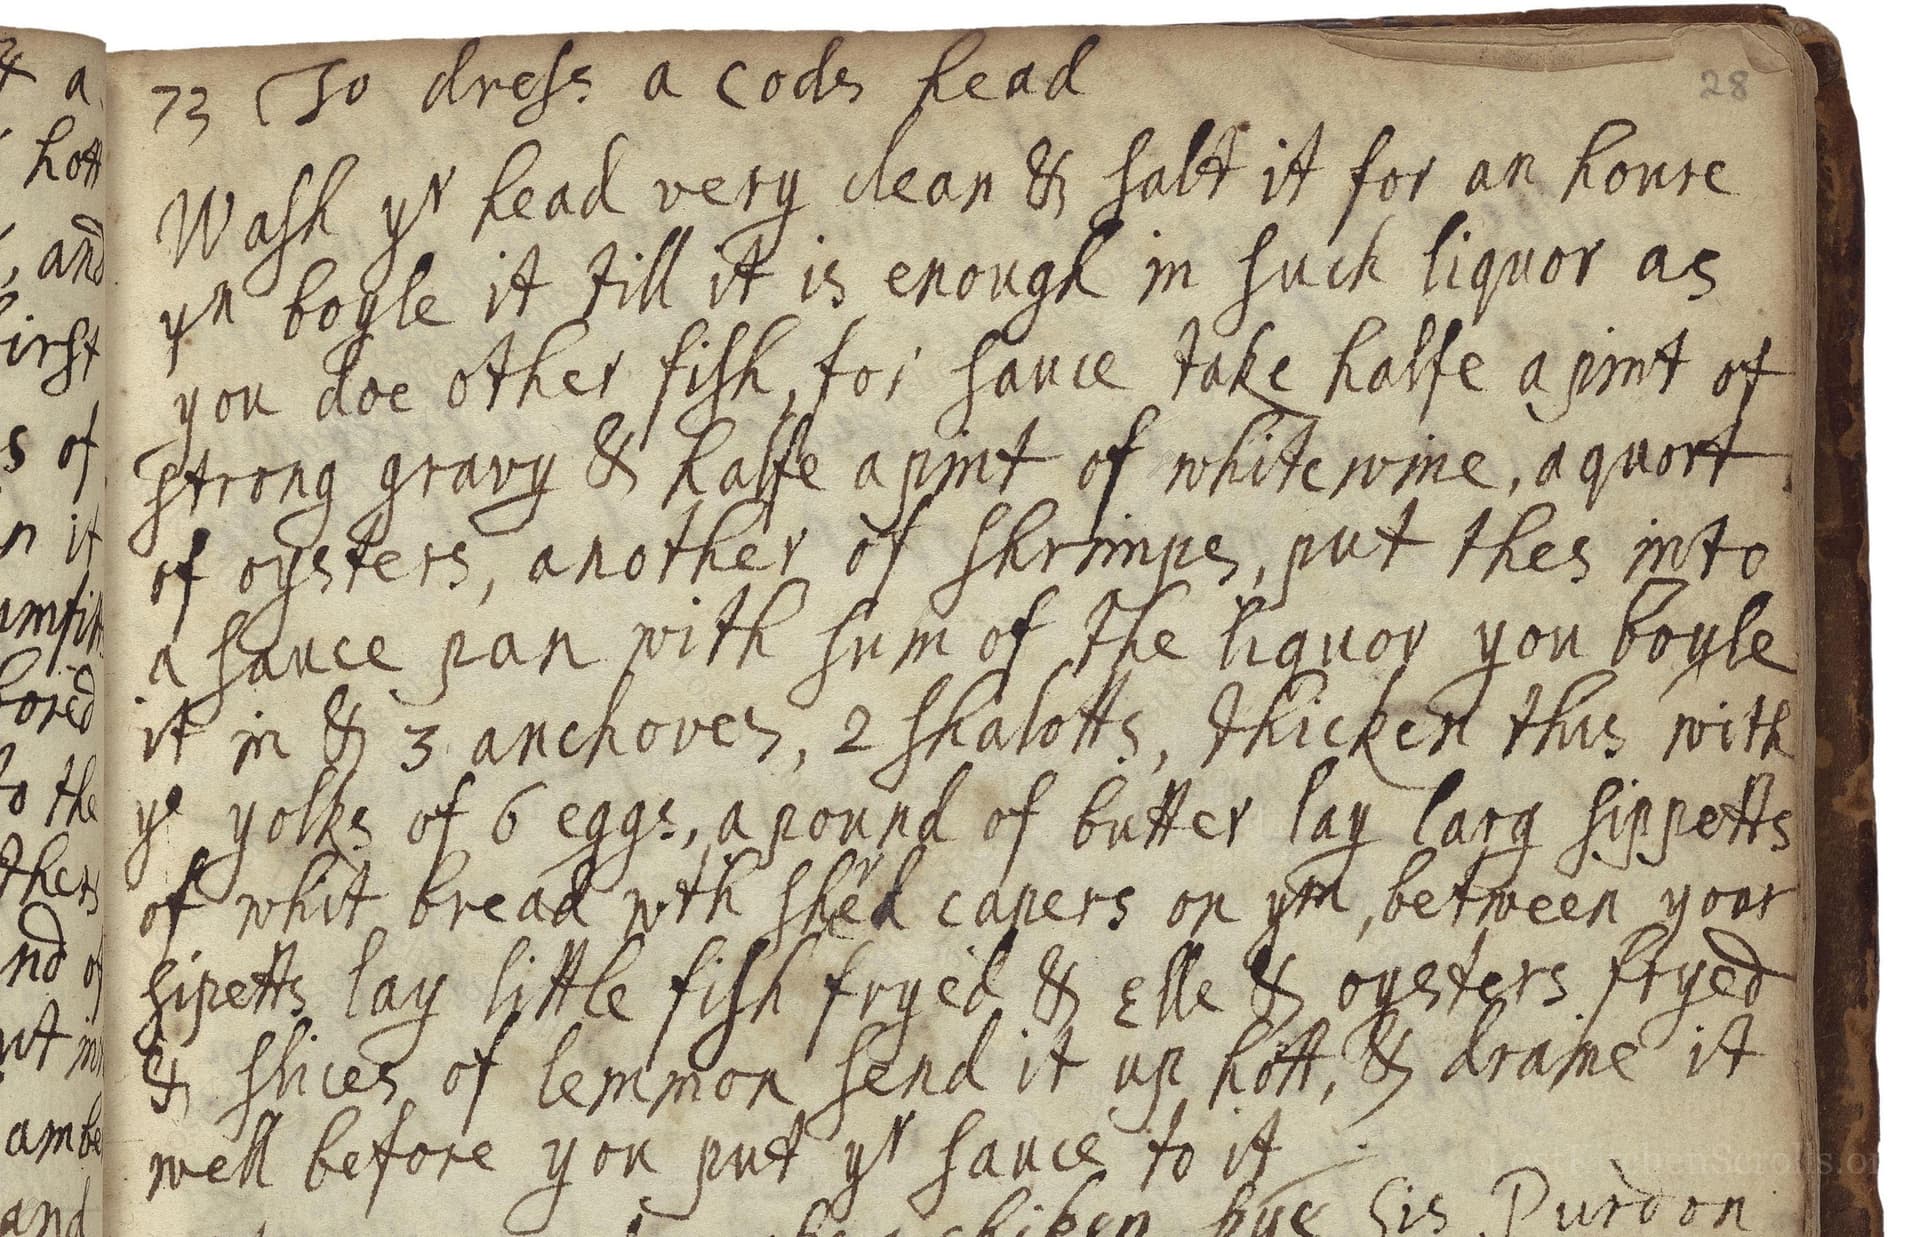 73 To dress a Cods head
28
Wash yr head very clean & salt it for an houre
yn boyle it till it is enough in such liquor as
you doe other fish, for sauce take halfe a pint of
strong gravy & halfe a pint of white wine, a quort
of oysters, another of shrimps, put thes into
a sauce pan with sum of the liquor you boyle
it in & 3 anchoves, 2 shalotts, thicken this with
ye yolks of 6 eggs, a pound of butter lay larg sippetts
of whit bread wth shred capers on ym, between your
sipetts lay little fish fryed & Elle & oysters fryed
& slices of lemmon send it up hott, & draine it
well before you put yr sauce to it
chiken pye Sis Purdon
& a
hott
, and
first
s of
n it
bored
to the
thers
nd of
ut in
ambe
and